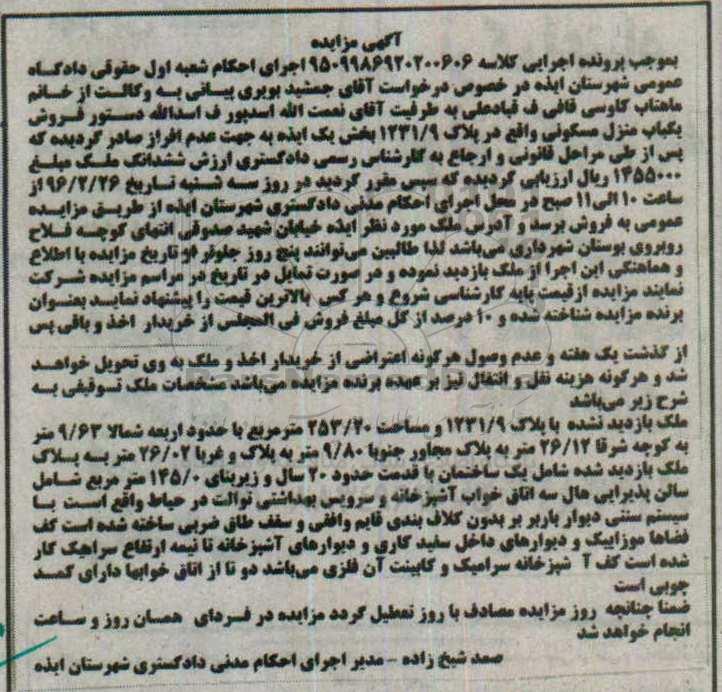 آگهی مزایده
بموجب پرونده اجرایی کلاسه ۹۵۰۹۹۸۶۹۲۰۲۰۰۶۰۶ اجرای احکام شعبه اول حقوقی دادگاه
عمومی شهرستان ایذه در خصوص درخواست آقای جمشید بویری پیانی به وکالت از خانم
ماهتاب کاوسی قافی ف قبادعلی به طرفیت آقای نعمت الله اسدپور ف اسدالله دستور فروش
یکباب منزل مسکونی واقع در پلاک ۱۲۳۱/۹ بخش یک ایذه به جهت عدم افراز صادر گردیده که
پس از طی مراحل قانونی و ارجاع به کارشناس رسمی دادگستری ارزش ششدانگ ملک مبلغ
۱۴۵۵۰۰۰ ریال ارزیابی گردیده که سپس مقرر گردید در روز سه شنبه تاریخ ۹۶/۲/۲۶ از
ساعت ۱۰ الی ۱۱ صبح در محل اجرای احکام مدنی دادگستری شهرستان ایذه از طریق مزایده
عمومی به فروش برسد و آدرس ملک مورد نظر ایذه خیابان شهید صدوقی انتهای کوچه فلاح
روبروی بوستان شهرداری می‌باشد لذا طالبین می‌توانند پنج روز جلوتر از تاریخ مزایده با اطلاع
و هماهنگی این اجرا از ملک بازدید نموده و در صورت تمایل در تاریخ در مراسم مزایده شرکت
نمایند مزایده از قیمت پایه کارشناسی شروع و هر کس بالاترین قیمت را پیشنهاد نماید بعنوان
برنده مزایده شناخته شده و ۱۰ درصد از کل مبلغ فروش فی المجلس از خریدار اخذ و باقی پس
از گذشت یک هفته و عدم وصول هرگونه اعتراضی از خریدار اخذ و ملک به وی تحویل خواهد
شد و هرگونه هزینه نقل و انتقال نیز بر عهده برنده مزایده می‌باشد مشخصات ملک توقیفی به
شرح زیر می‌باشد
ملک بازدید نشده با پلاک ۱۲۳۱/۹ و مساحت ۲۵۳/۲۰ مترمربع با حدود اربعه شمالا ۹/۶۲ متر
به کوچه شرقا ۲۶/۱۲ متر به پلاک مجاور جنوبا ۹/۸۰ متر به پلاک و غربا ۲۶/۰۲ متر به پلاک
ملک بازدید شده شامل یک ساختمان با قدمت حدود ۲۰ سال و زیربنای ۱۴۵/۰ متر مربع شامل
سالن پذیرایی هال سه اتاق خواب آشپزخانه و سرویس بهداشتی توالت در حیاط واقع است با
سیستم سنتی دیوار باربر بر بدون کلاف بندی قایم وافقی و سقف طاق ضربی ساخته شده است کف
فضاها موزاییک و دیوارهای داخل سفید کاری و دیوارهای آشپزخانه تا نیمه ارتفاع سرامیک کار
شده است کف آ شپزخانه سرامیک و کابینت آن فلزی می‌باشد دو تا از اتاق خوابها دارای کمد
چوبی است
ضمنا چنانچه روز مزایده مصادف با روز تعطیل گردد مزایده در فردای همسان روز و ساعت
انجام خواهد شد
صمد شیخ زاده – مدیر اجرای احکام مدنی دادگستری شهرستان ایذه